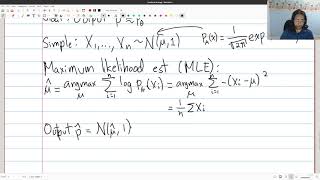 Simple: X₁,..., Xₙ ~ N(μ,1) Pμ(x) = 1/√2π exp
Maximum likelihood est (MLE):
μ̂ = argmax μ Σ i=1 n log Pμ(Xi) = argmax μ Σ i=1 n -(Xi - μ)²
= 1/n Σ Xi
Output p̂ = N(μ̂, 1)